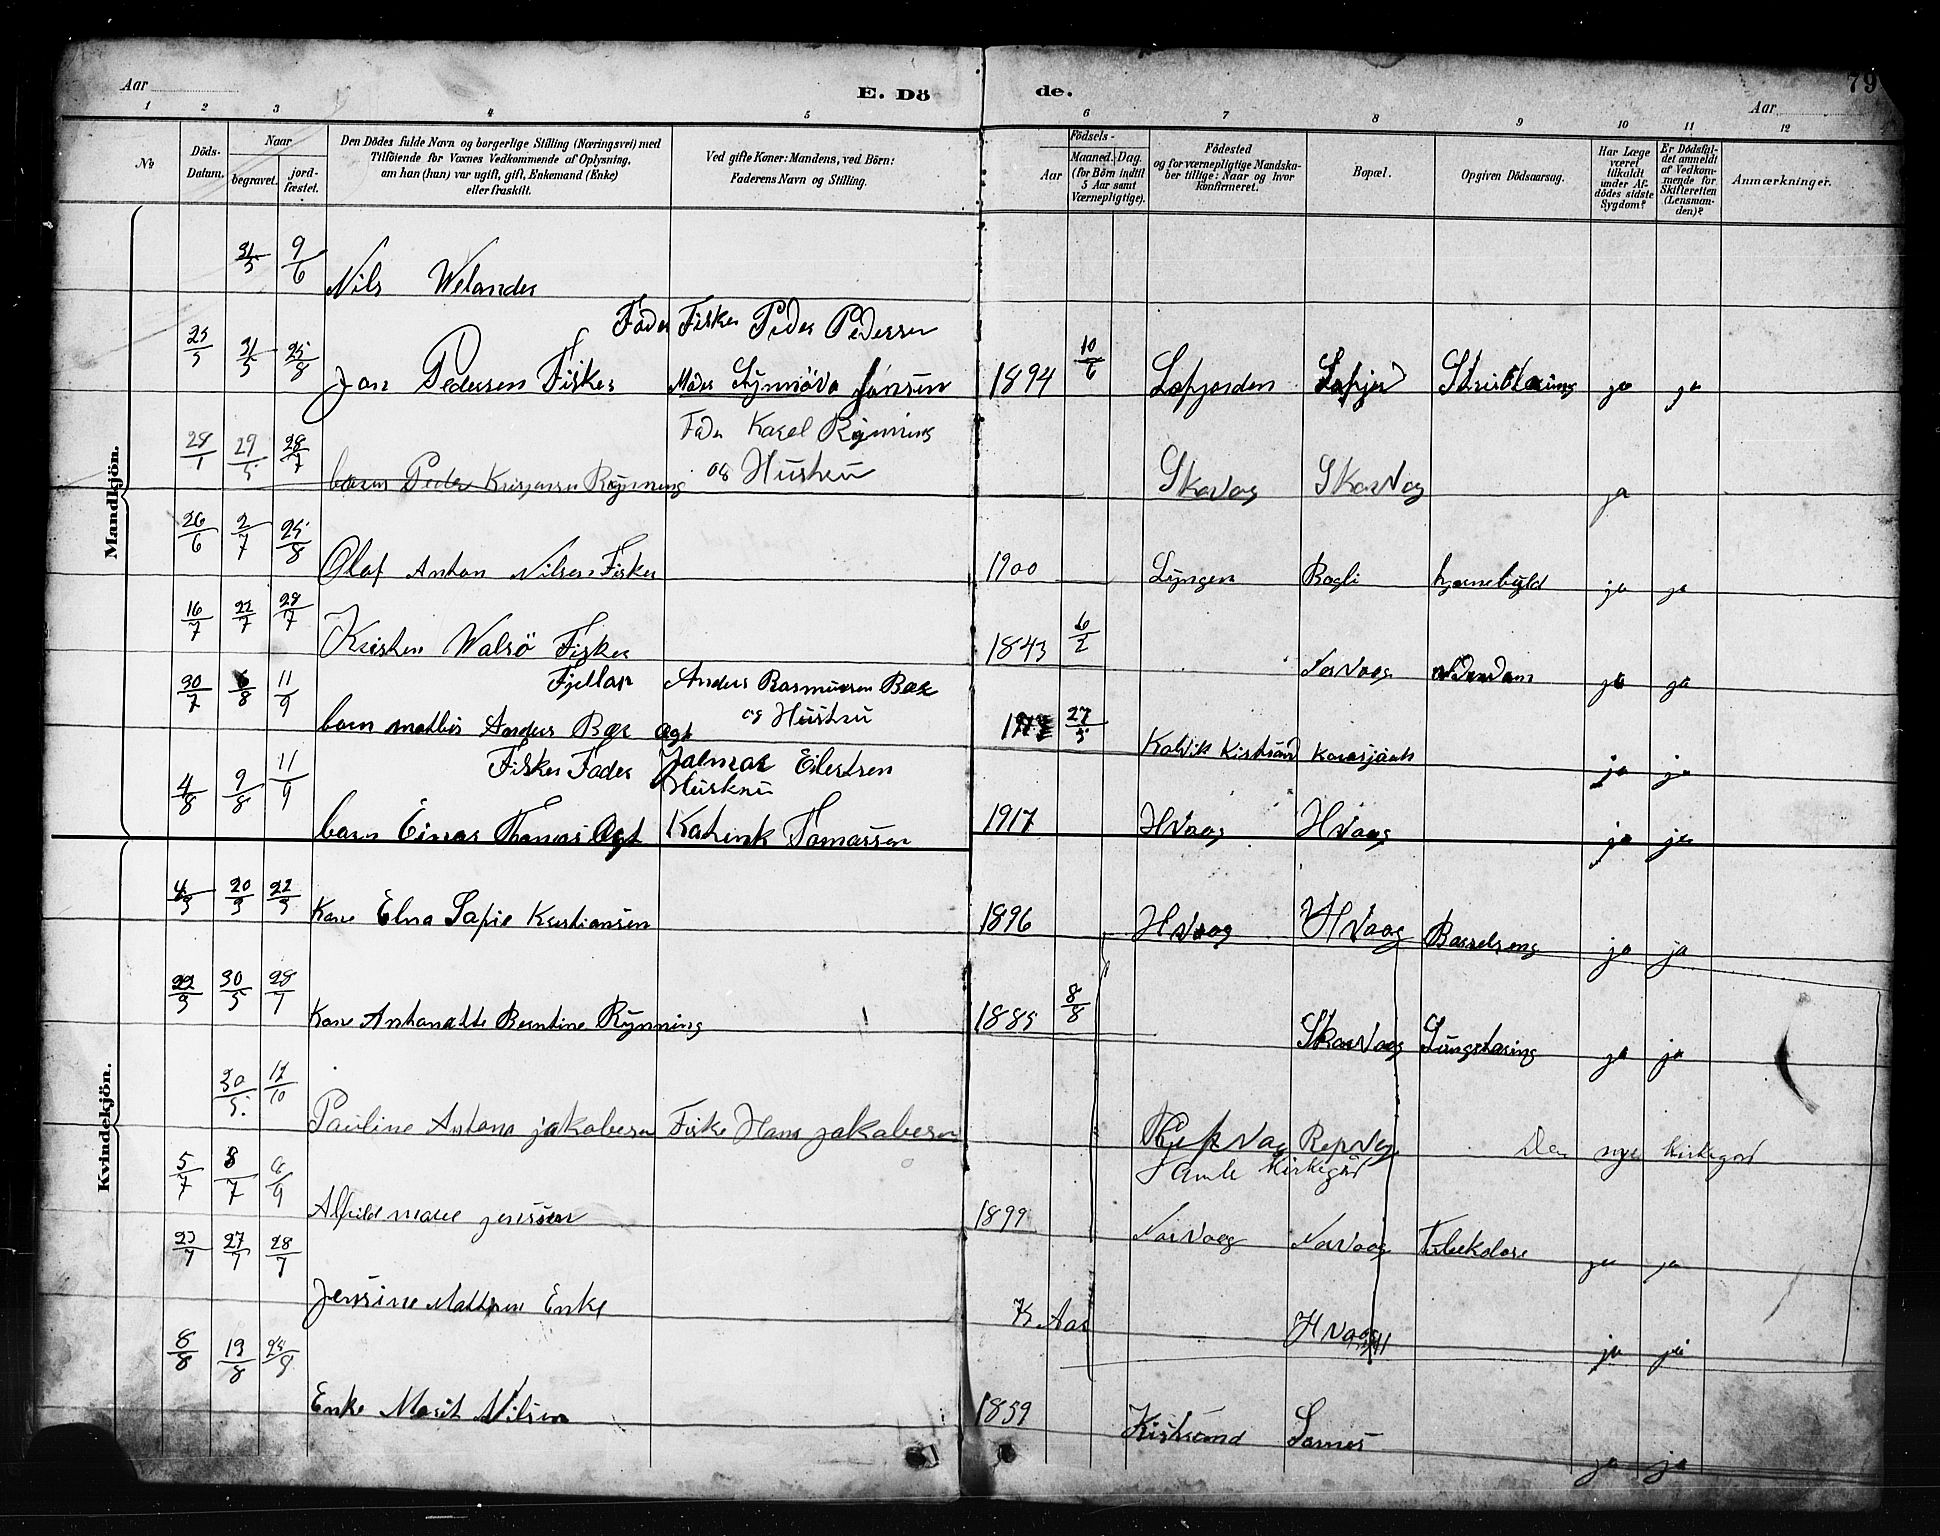 Aar
E. Dö
de.
79
Aar
1 2 3 4 5 6 7 8 9 10 11 12
No
Döds-Datum.
Naar
begravet.
jord-fæstet.
Den Dödes fulde Navn og borgerlige Stilling (Næringsvei) med
Tilföiende for Voxnes Vedkommende af Oplysning,
om han (hun) var ugift, gift, Enkemand (Enke)
eller fraskilt.
Ved gifte Koner: Mandens, ved Börn:
Faderens Navn og Stilling.
Födsels-
Aar
Maaned. Dag.
(for Börn indtil
5 Aar samt
Værnepligtige).
Födested
og for værnepligtige Mandska-
ber tillige: Naar og hvor
konfirmeret.
Bopæl.
Opgiven Dödsaarsag.
Har Læge
været
tilkaldt
under Af-
dödes sidste
Sygdom?
Er Dödsfal-
det anmeldt
af Vedkom-
mende for
Skifteretten
(Lensman-
den)?
Anmærkninger.
Mandkjön.
31/5 9/6 Nils Welander
Fader Fisker Peder Pedersen
25/5 31/5 25/8 Jon Pedersen Fisker Moder Synnöva Jonsen 1894 10/6 ja ja
Fader Karel Rynning
28/1 29/5 28/7 barn Peder Rynning og Hustru Skavog Skarvog ja
26/6 2/7 25/8 Olaf Anton Nilsen Fisker 1900 Lyngen ja ja
16/7 22/7 29/7 Kristen Walsö Fisker 1843 6/2 ja ja
30/7 8/8 11/9 Fjellap Anders Rasmussen
barn Anders og Hustru 27/5 Kistrand Karasjock ja ja
4/8 9/8 11/9 Fisker Fader Jalmar Eilertsen
Hustru
barn Einar Thomas Katrink Tomassen 1917 HVaag HVaag ja ja
Kvindekjön.
4/3 20/3 22/3 Kone Elna Sofie Kristiansen 1896 HVaag HVaag Barselseng ja ja
22/3 30/5 28/7 Kone Bentine Rynning 1885 8/8 Skarvaag ja ja
30/5 17/10 Pauline Antona jakobsen Fisker Hans jakobsen Repvag Repvag Den nye kirkegård
Gamle kirkegård
5/7 8/7 6/9 Alfhild marie jenssen 1899 Norvaag Norvaag ja ja
23/7 27/7 28/7 Jensine Enke Aar HVaag ja ja
8/8 13/8 25/8 Enke Marit Nilsen 1859 Kistrand Sarnes ja ja